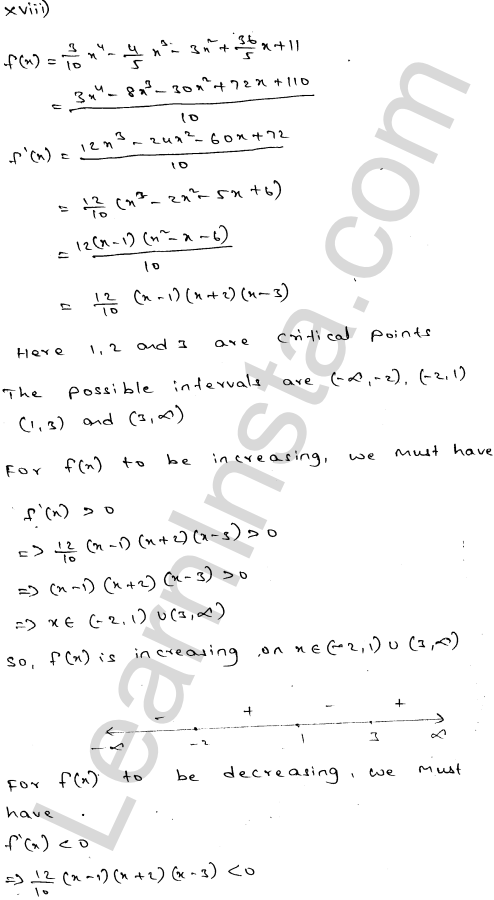 xviii)
f(x) = 3/10 x⁴ - 4/5 x³ - 3x² + 36/5 x + 11
= (3x⁴ - 8x³ - 30x² + 72x + 110)/10
f'(x) = (12x³ - 24x² - 60x + 72)/10
= 12/10 (x³ - 2x² - 5x + 6)
= 12(x-1)(x² - x - 6)/10
= 12/10 (x-1)(x+2)(x-3)
Here 1, 2 and 3 are critical points
The possible intervals are (-∞, -2), (-2, 1)
(1, 3) and (3, ∞)
For f(x) to be increasing, we must have
f'(x) > 0
=> 12/10 (x-1)(x+2)(x-3) > 0
=> (x-1)(x+2)(x-3) > 0
=> x ∈ (-2, 1) ∪ (3, ∞)
So, f(x) is increasing on x ∈ (-2, 1) ∪ (3, ∞)
- + - +
-∞ -2 1 3 ∞
For f(x) to be decreasing, we must
have
f'(x) < 0
=> 12/10 (x-1)(x+2)(x-3) < 0
LearnInsta.com